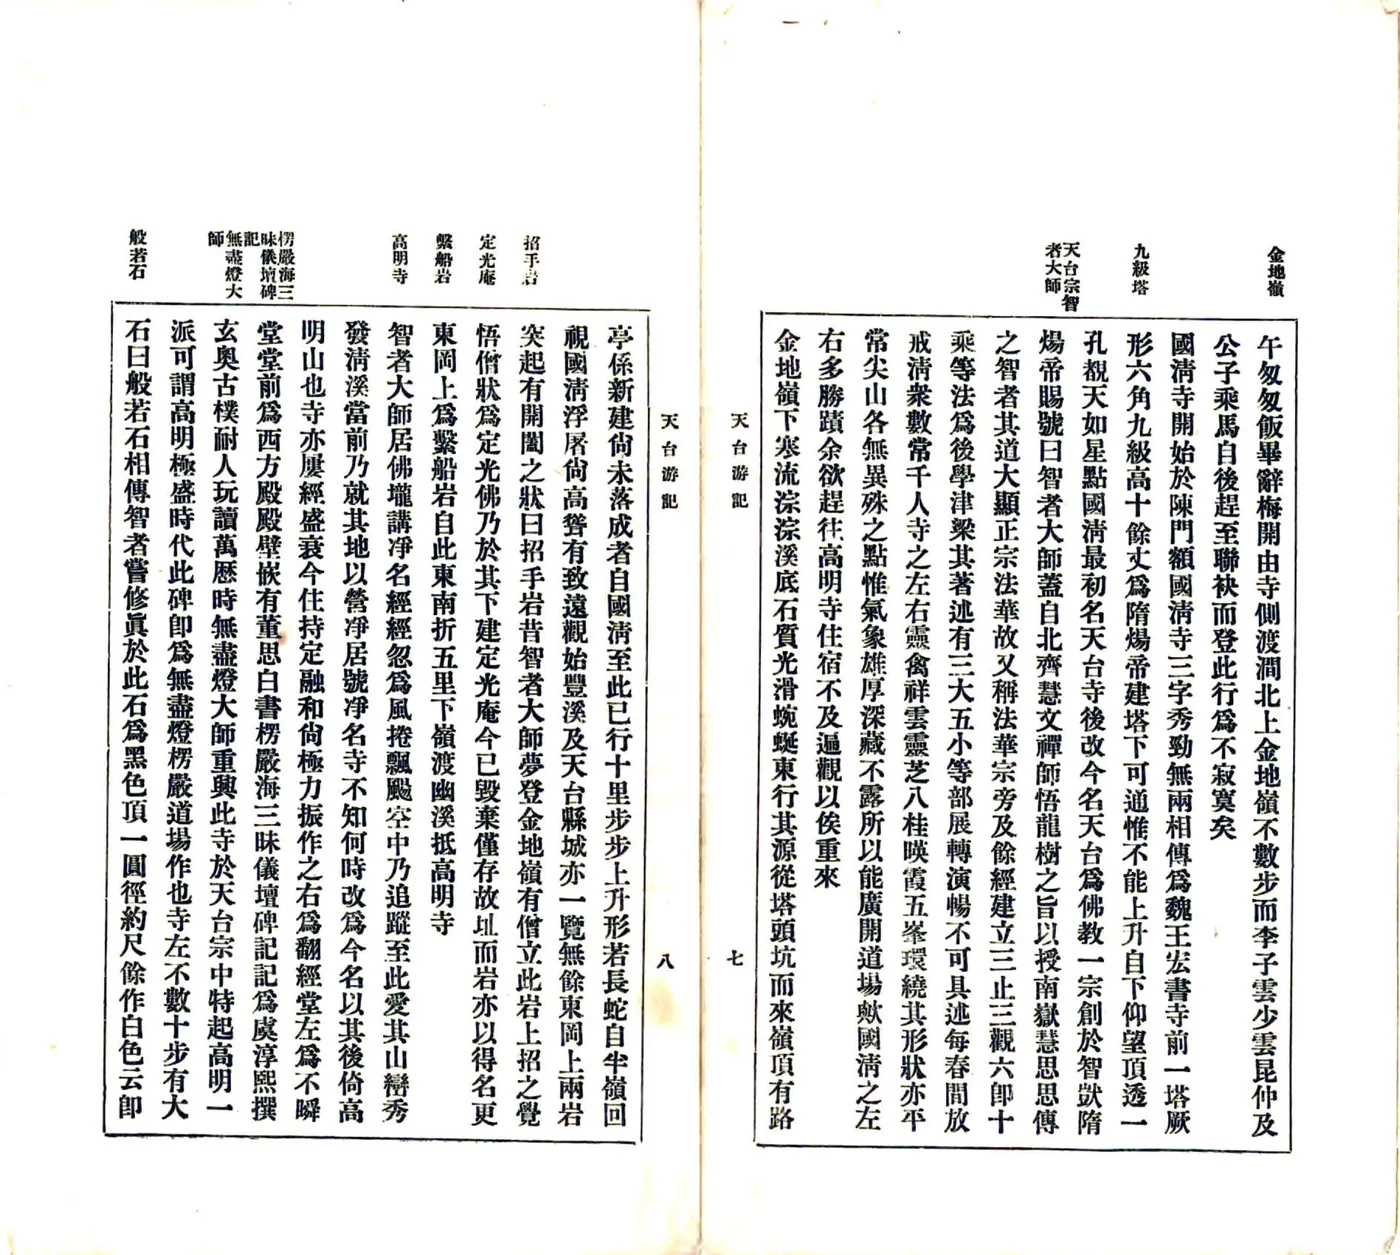 金地嶺
九級塔
天台宗智
者大師
午匆匆飯畢辭梅開由寺側渡澗北上金地嶺不數步而李子雲少雲昆仲及
公子乘馬自後趕至聯袂而登此行爲不寂寞矣
國淸寺開始於陳門額國淸寺三字秀勁無兩相傳爲魏王宏書寺前一塔厥
形六角九級高十餘丈爲隋煬帝建塔下可通惟不能上升自下仰望頂透一
孔覩天如星點國淸最初名天台寺後改今名天台爲佛教一宗創於智𫖮隋
煬帝賜號曰智者大師蓋自北齊慧文禪師悟龍樹之旨以授南嶽慧思思傳
之智者其道大顯正宗法華故又稱法華宗旁及餘經建立三止三觀六卽十
乘等法爲後學津梁其著述有三大五小等部展轉演暢不可具述每春間放
戒淸衆數常千人寺之左右靈禽祥雲靈芝八桂暎霞五峯環繞其形狀亦平
常尖山各無異殊之點惟氣象雄厚深藏不露所以能廣開道場歟國淸之左
右多勝蹟余欲趕往高明寺住宿不及遍觀以俟重來
金地嶺下寒流淙淙溪底石質光滑蜿蜒東行其源從塔頭坑而來嶺頂有路
天台游記
七
天台游記
八
招手岩
定光庵
繫船岩
高明寺
楞嚴海三
昧儀壇碑
記
無盡燈大
師
般若石
亭係新建尙未落成者自國淸至此已行十里步步上升形若長蛇自半嶺回
視國淸浮屠尙高聳有致遠觀始豐溪及天台縣城亦一覽無餘東岡上兩岩
突起有開闔之狀曰招手岩昔智者大師夢登金地嶺有僧立此岩上招之覺
悟僧狀爲定光佛乃於其下建定光庵今已毀棄僅存故址而岩亦以得名更
東岡上爲繫船岩自此東南折五里下嶺渡幽溪抵高明寺
智者大師居佛壠講净名經經忽爲風捲飄颺空中乃追蹤至此愛其山巒秀
發淸溪當前乃就其地以營净居號净名寺不知何時改爲今名以其後倚高
明山也寺亦屢經盛衰今住持定融和尙極力振作之右爲翻經堂左爲不瞬
堂堂前爲西方殿殿壁嵌有董思白書楞嚴海三昧儀壇碑記記爲虞淳熙撰
玄奥古樸耐人玩讀萬曆時無盡燈大師重興此寺於天台宗中特起高明一
派可謂高明極盛時代此碑卽爲無盡燈楞嚴道場作也寺左不數十步有大
石曰般若石相傳智者嘗修眞於此石爲黑色頂一圓徑約尺餘作白色云卽